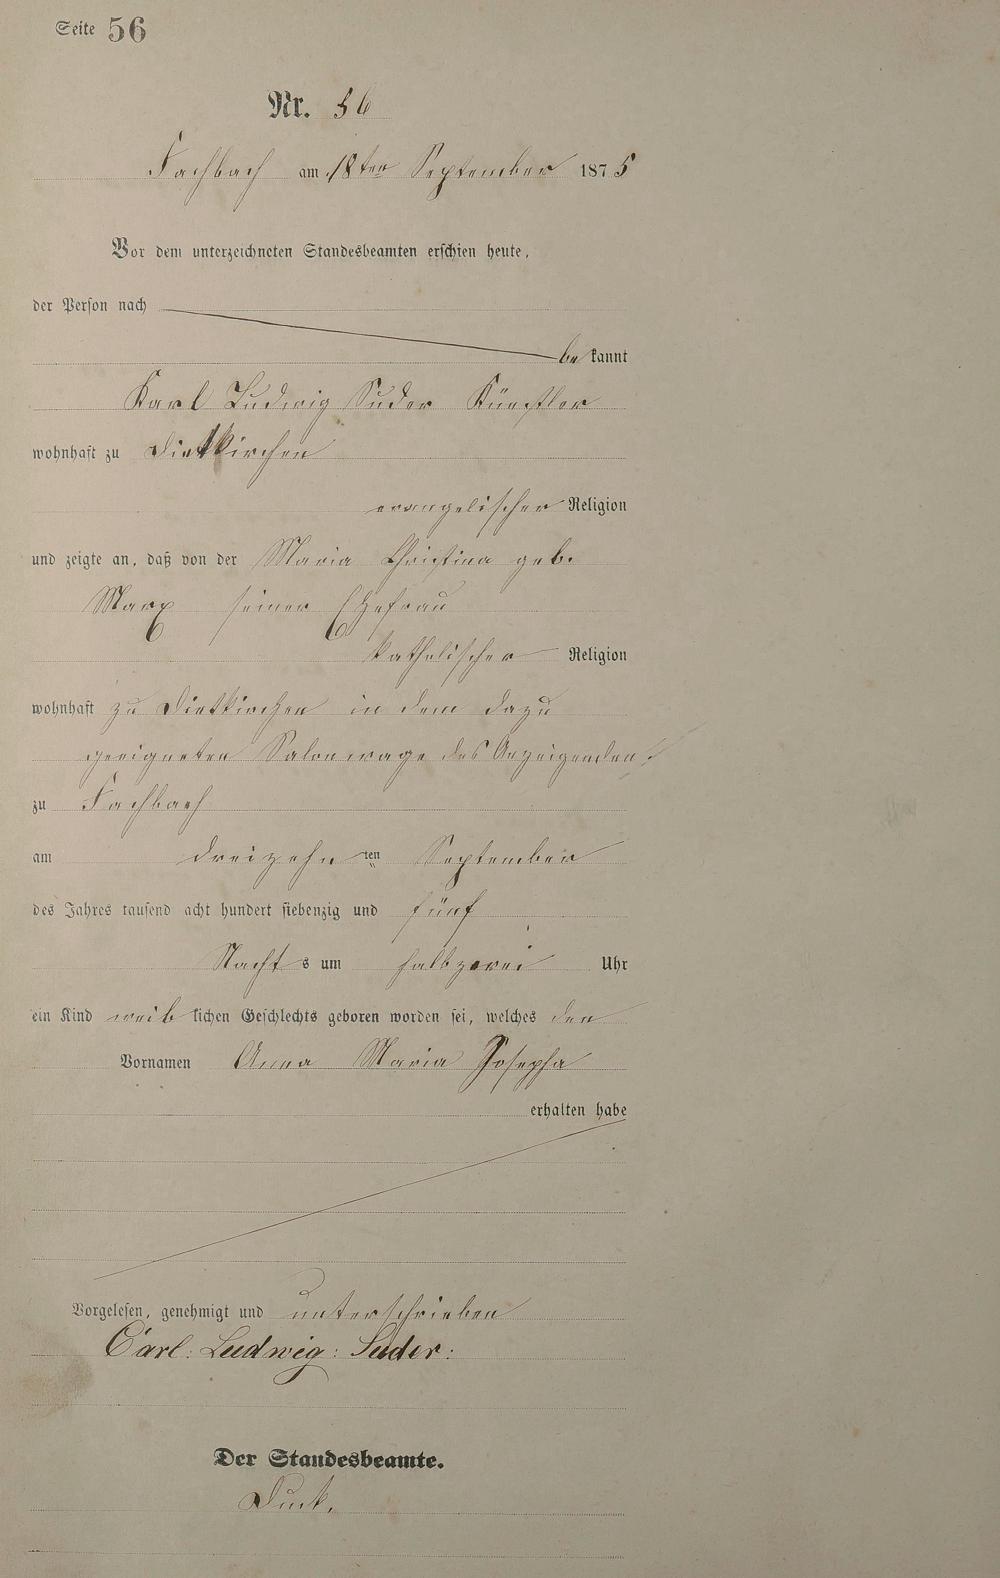 Seite 56
Nr. 56
Fachbach am 18ten September 1875
Vor dem unterzeichneten Standesbeamten erschien heute,
der Person nach
bekannt
Karl Ludwig Suder Künstler
wohnhaft zu Dietkirchen
evangelischer Religion
und zeigte an, daß von der Maria Christina geb.
Marx seiner Ehefrau
katholischer Religion
wohnhaft zu Dietkirchen in dem dazu
geeigneten Salonwage des Anzeigenden
zu Fachbach
am dreizehnten September
des Jahres tausend acht hundert siebenzig und fünf
Nachts um halbzwei Uhr
ein Kind weiblichen Geschlechts geboren worden sei, welches den
Vornamen Anna Maria Josepha
erhalten habe
Vorgelesen, genehmigt und unterschrieben
Carl: Ludwig: Suder:
Der Standesbeamte.